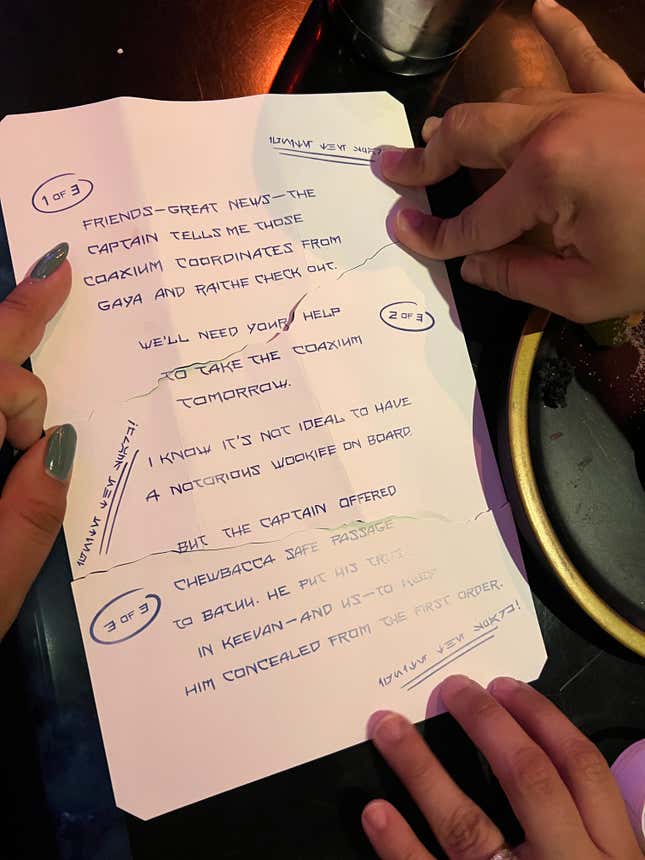 1 OF 3
FRIENDS—GREAT NEWS—THE
CAPTAIN TELLS ME THOSE
COAXIUM COORDINATES FROM
GAYA AND RAITHE CHECK OUT.
WE'LL NEED YOUR HELP
2 OF 3
TO TAKE THE COAXIUM
TOMORROW.
I KNOW IT'S NOT IDEAL TO HAVE
A NOTORIOUS WOOKIEE ON BOARD
BUT THE CAPTAIN OFFERED
CHEWBACCA SAFE PASSAGE
3 OF 3
TO BATUU. HE PUT HIS
IN KEEVAN—AND US—TO KEEP
HIM CONCEALED FROM THE FIRST ORDER.